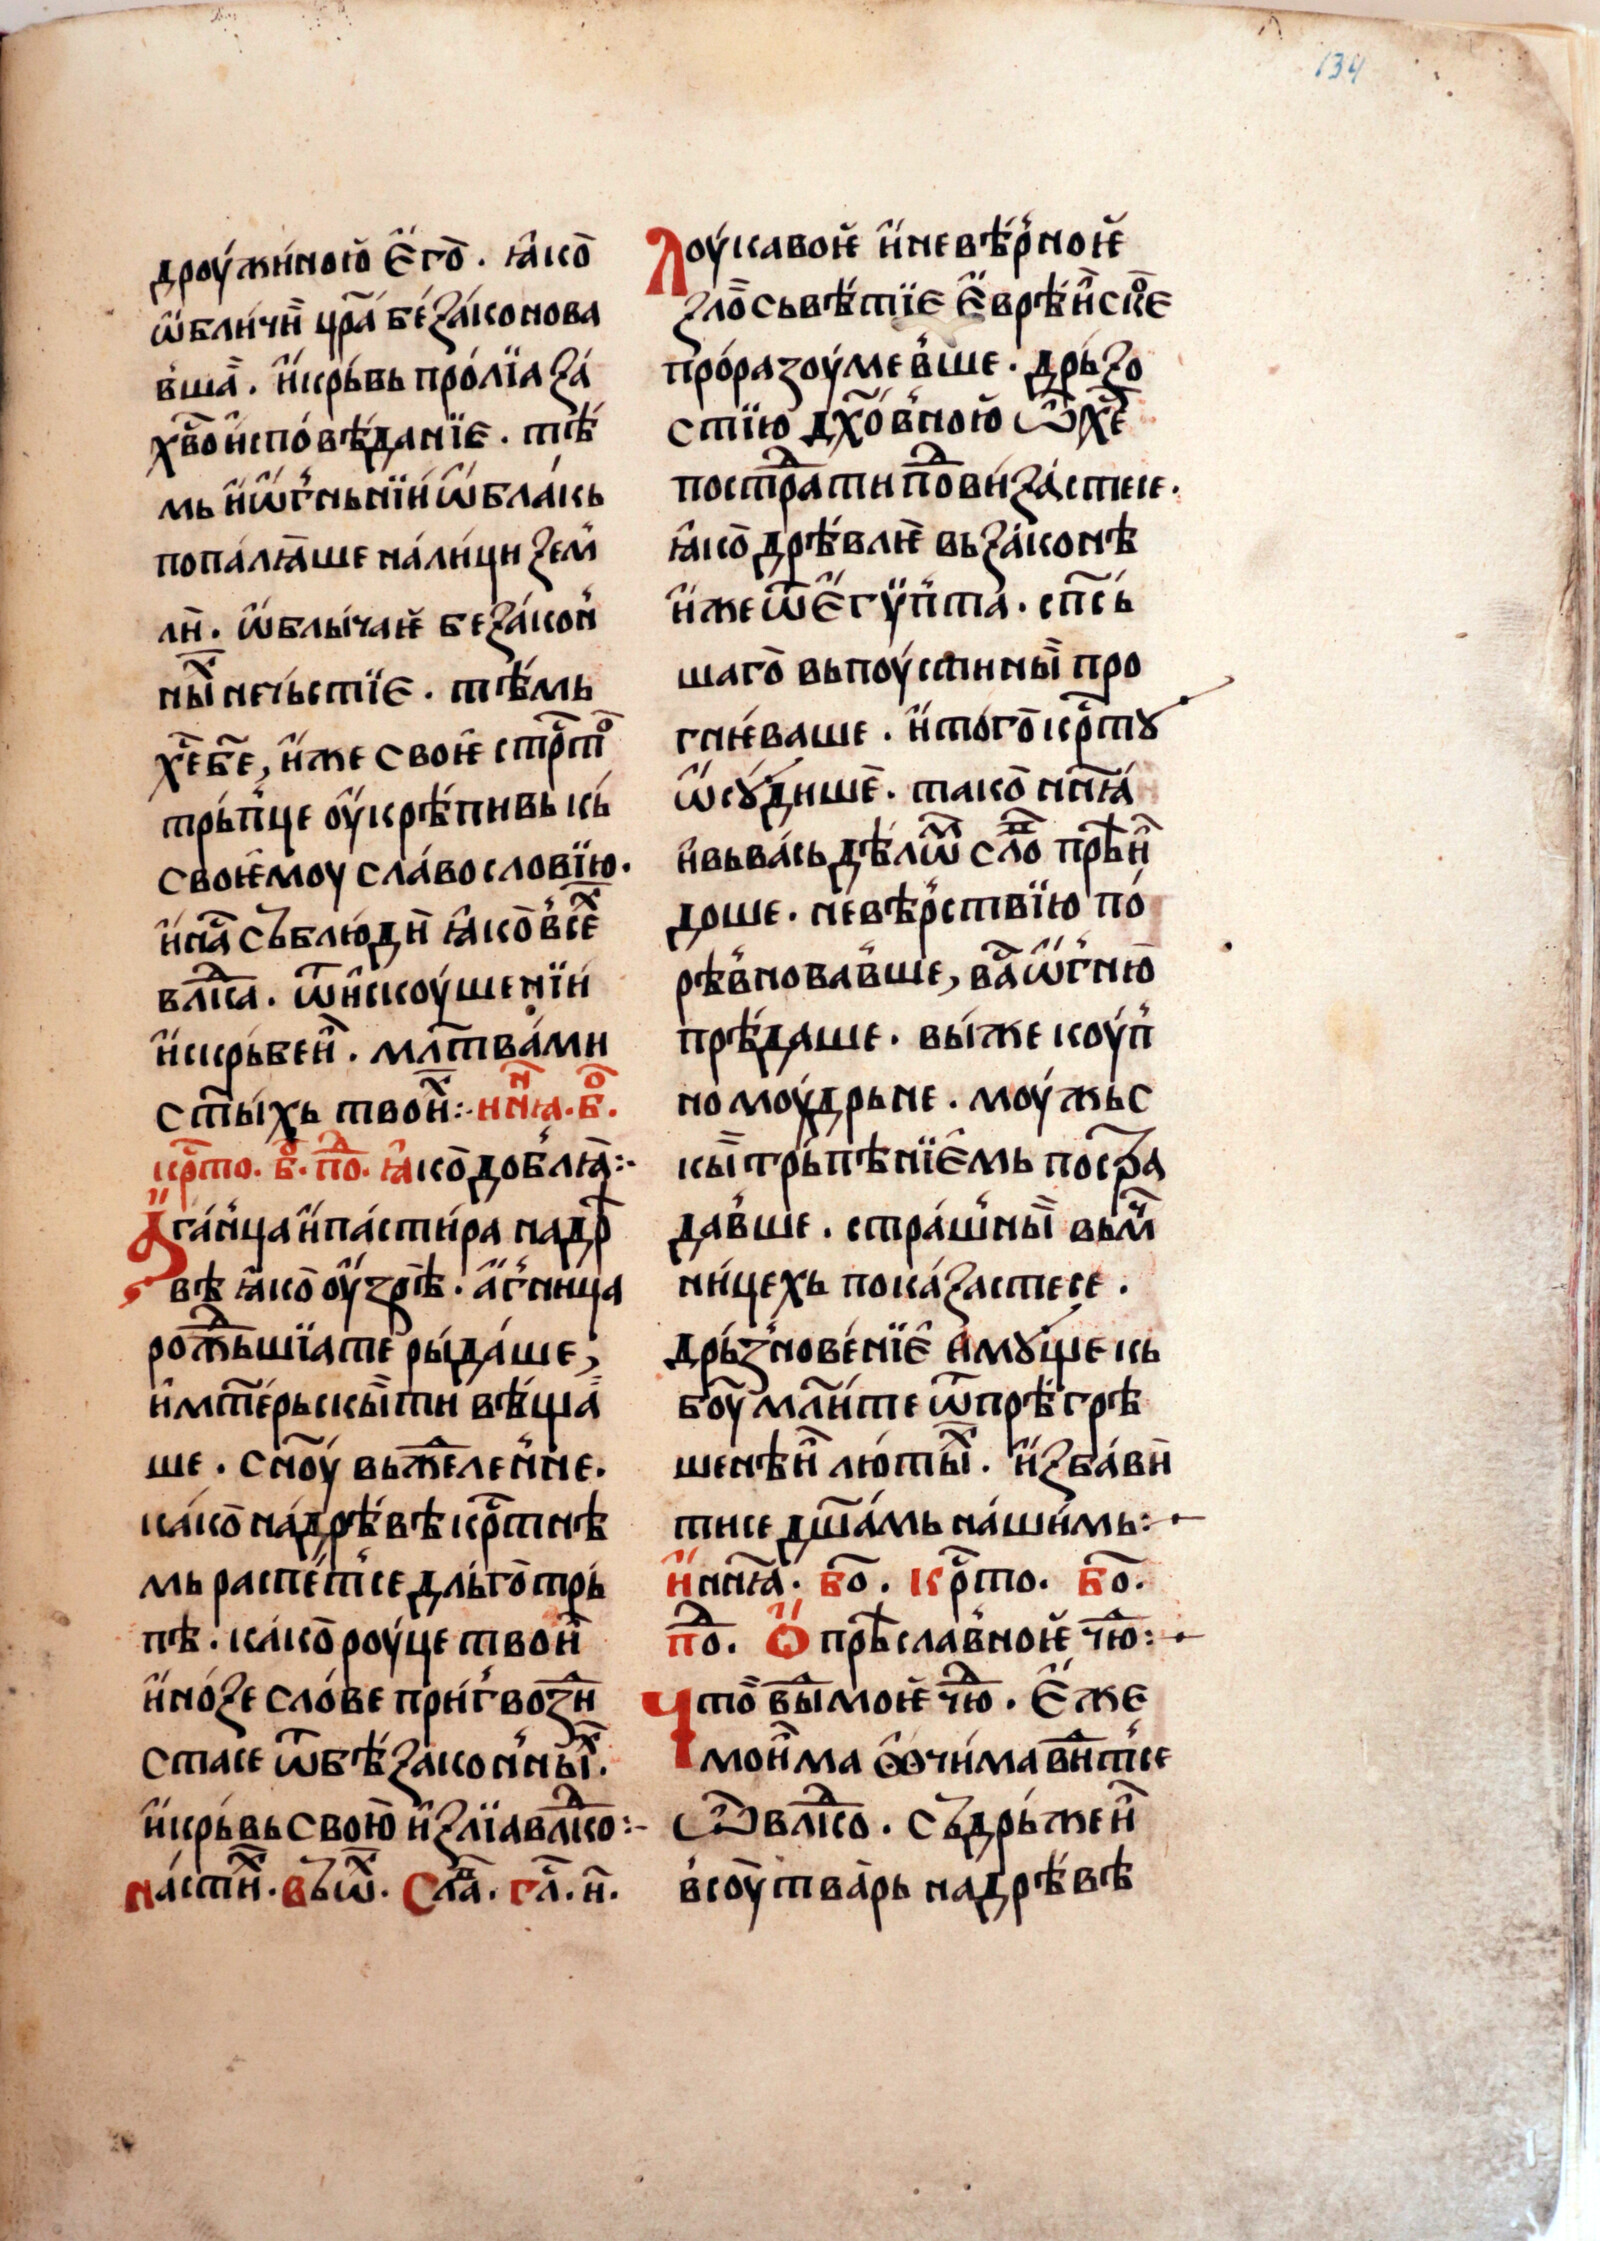 134
дроуж́иною҆ Є҆го̄ . ꙗ҆ко̄
ѡ҆бличӣ цр҃а бе́за́конова
в҆ша̄ . и҆ крь́вь про́лїа за́
хв҃о и҆спо́вѣ́данїє . тѣ́
мь и҆ ѡ҆г҆ньнїи ѡ҆бла́кь
попа́лꙗ҆ше на ли́ци зем҆
лӣ . ѡ҆блы́чаѥ бе за́кон҆
ны̄ⷯ нечь́стїє . тѣ́мь
хе҃ бе҃, и҆же своѥ҆ стрⷭ҇тоⷨ
трь́п҆це оу҆крѣ́пивь кь́
своѥ҆моу сла́вословїю .
и҆ на̄ⷭ съблю́дӣ ꙗ҆ко̄ в҆сеⷯ
влⷣка . ѿ и҆скоу́шенїи
и҆ скрь́беӣ . млт҃ва́ми
ст҃ы́хь твоӣⷯ :· нн҃ꙗ . бⷪ҇ .
крⷭ҇то . бⷪ҇ . поⷣ . ꙗ҆ко̄ до́б҆лꙗ̄ :·
А҆га́н҆ца и҆ па́сти́ра на дрⷺ
вѣ ꙗ҆ко̄ оу҆зрѣ̄ . а҆г҆ница
рожⷣьшїа те ры́да́ше,
и҆ мт҃е́рьскы̄ ти вѣ́ща̄
ше . сн҃оу́ вьжⷣелен҆не .
ка́ко̄ на́ дрѣ́вѣ крⷭ҇тнѣ
мь распе́т҆се дль́го̄ трь́
пѣ . ка́ко̄ роу́це твоӣ
и҆ но́зе сло́ве при́г҆возⷣи
стасе ѿ бѣ за́кон҆ны̄ⷯ .
и҆ крь́вь свою̄ и҆злїа влⷣко :·
на́стӣⷯ . въⷥѡⷯ . Сла̄ⷡ . гл҃ . и҃ .
Лоу́кавоѥ и҆ невѣ́р҆ноѥ
зло̄ сьвѣ́тїє Є҆врѣ́ӣскоⷨє
про́разоу́мев҆ше . дрь́зо
стїю дх҃о́в҆ною ѿ хе҃
пострⷣати поⷣви́за́стесе .
ꙗ҆ко̄ дрѣ́влѥ вь за́конѣ
и҆же ѿ Є҆гѵ́п҆та . сп҃сь́
шаго̄ вь поу́стинӣ про
гнѥ́ваше . и҆ то́го̄ крⷭ҇ту
ѡ҆су́дише̄ . тако̄ нн҃ꙗ́
и҆ вь ва́сь дѣ́лѡⷨ слоⷡ прѣ́ӣ
доше . не́вѣ́р҆ствїю по́
рѣ́в҆новав҆ше, ва̄ⷭ ѡ҆г҆ню̄
прѣ́даше . вы́же коу́п҆
номоу́дрьне . моу́жьс
кы̄ трь́пѣнїє҆мь пострⷣа
дав҆ше . стра́ш҆ны̄ вь мⷱ҇
ни́цехь пока́застесе .
дрь́з҆нове́нїє и҆му́ще кь
бо҃у мл҃и́те ѿ прѣ́грѣ
шенѣӣ лю́ты̄ⷯ . и҆збавӣ
тисе дш҃а́мь на́ши́мь :·
и҆ нн҃ꙗ́ . бо҃ . крⷭ҇то . бо҃ .
поⷣ . Ѽ прѣ́слав҆ноѥ чюⷣ :·
Что̄ виⷣмоѥ чюⷣ . Є҆же
моӣма ѻ҆чи́ма виⷣт҆се
ѽ влⷣко . съдрь́жеӣ
в҆соӯ тва̄рь на дрѣ́вѣ